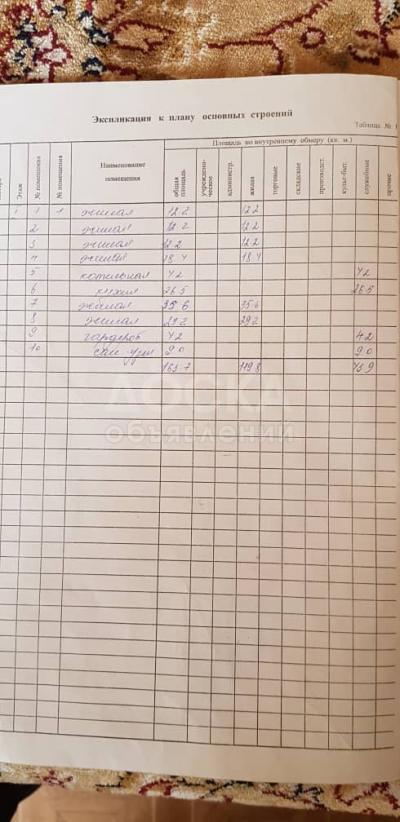 Экспликация к плану основных строений
Таблица №
Площадь по внутреннему обмеру (кв. м.)
Этаж
№ помещения
№ помещения
Наименование помещения
общая площадь
учрежденческое
администр.
жилая
торговые
складские
производст.
культ-быт.
служебное
прочие
1 1 1 жилая 12 2 12 2
2 жилая 12 2 12 2
3 жилая 12 2 12 2
4 жилая 18 4 18 4
5 котельная 4 2 4 2
6 кухня 26 5 26 5
7 жилая 35 6 35 6
8 жилая 29 2 29 2
9 гардероб 4 2 4 2
10 сан. узел 9 0 9 0
163 7 119 8 43 9
ДОСКА
объявлений